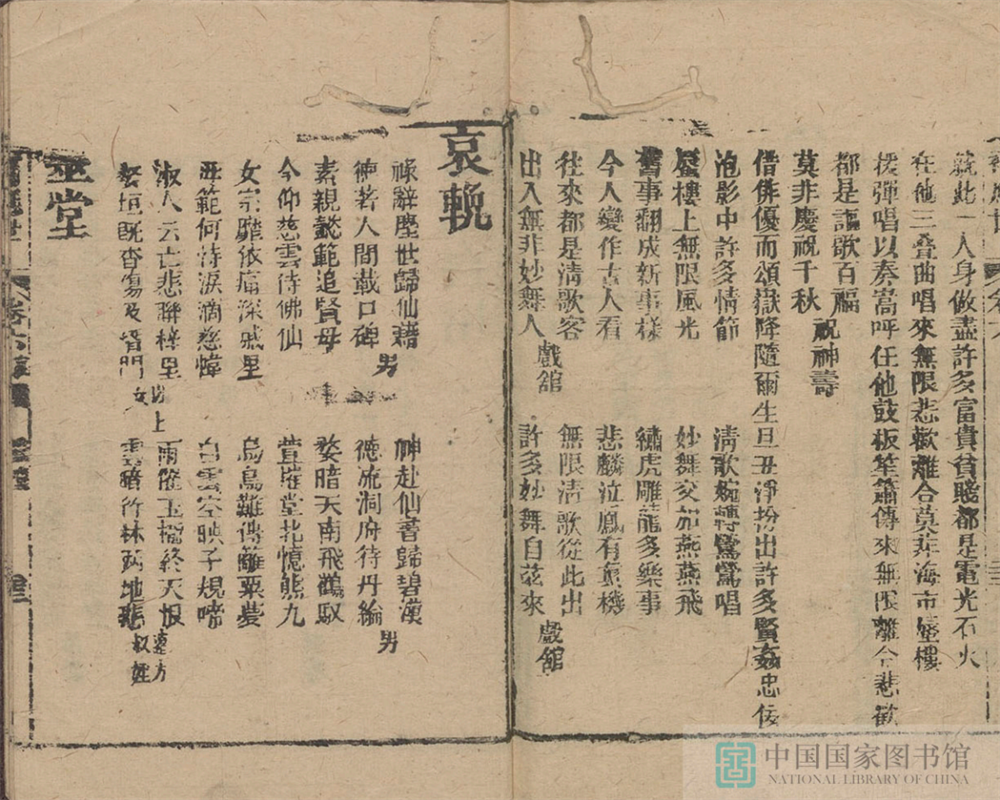 就此一人身做盡許多富貴貧賤都是電光石火
在他三叠曲唱來無限悲歡離合莫非海市蜃樓
援彈唱以奏嵩呼任他鼓板笙簫傳來無限離合悲歡
都是謳歌百福
莫非慶祝千秋 祝神壽
借俳優而頌嶽降隨爾生旦丑淨扮出許多賢姦忠佞
泡影中許多情節 清歌婉轉鶯鶯唱
蜃樓上無限風光 妙舞交加燕燕飛
舊事翻成新事樣 繡虎雕龍多樂事
今人變作古人看 悲麟泣鳳有禽機
往來都是清歌客 無限清歌從此出
出入無非妙舞人 戲舘 許多妙舞自茲來 戲舘
哀輓
祿辭塵世歸仙籍 神赴仙蓍歸碧漢
德著人間載口碑 男 德流洞府待丹綸 男
素親懿範追賢母 婺暗天南飛鶴馭
今仰慈雲侍佛仙 萱摧堂北憶熊九
女宗誰依痛深戚里 烏鳥難傳離栗夢
母範何恃淚滴慈幃 白雲空映子規啼
淑人云亡悲聯梓里 雨隆玉櫺終天恨
婺垣既沓傷及搢門 以上女 雲暗竹林兩地悲 遠方叔姪
中国国家图书馆
NATIONAL LIBRARY OF CHINA